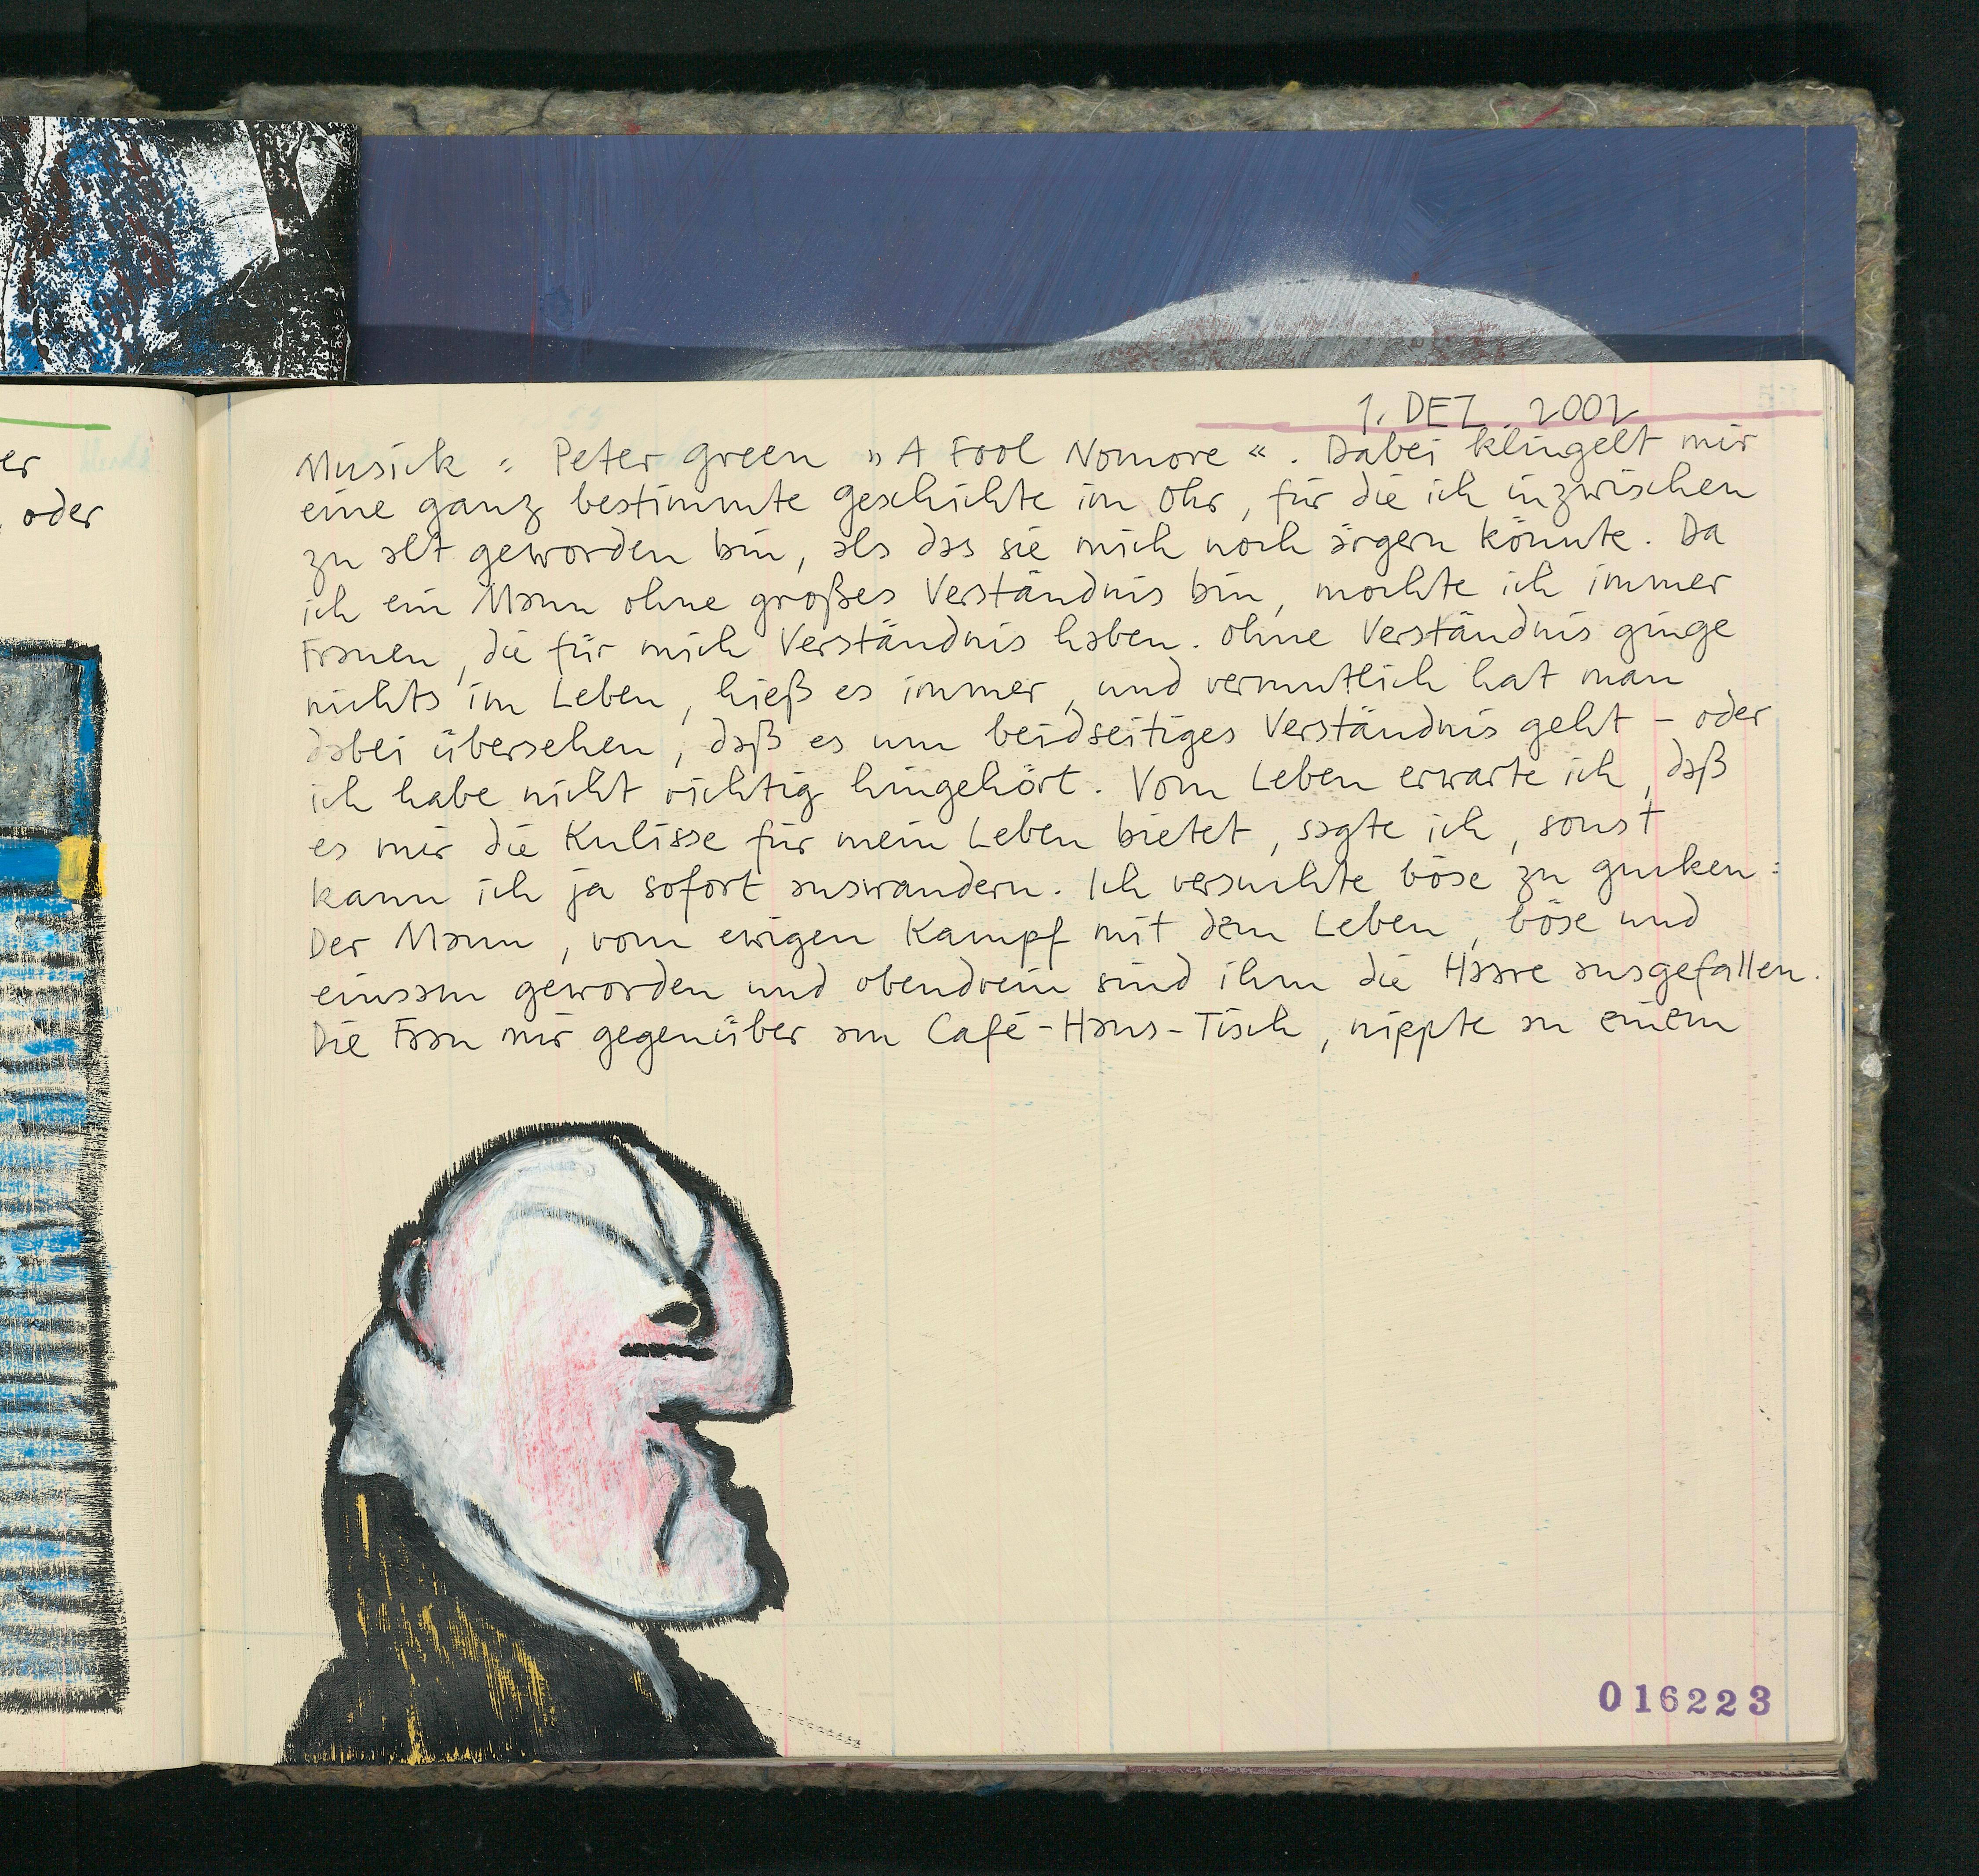 er
, oder
1. DEZ 2002
Musick : Peter Green „A Fool Nomore“. Dabei klingelt mir
eine ganz bestimmte Geschichte im Ohr, für die ich inzwischen
zu alt geworden bin, als das sie mich noch ärgern könnte. Da
ich ein Mann ohne großes Verständnis bin, mochte ich immer
Frauen, die für mich Verständnis haben. Ohne Verständnis ginge
nichts im Leben, hieß es immer, und vermutlich hat man
dabei übersehen, daß es um beidseitiges Verständnis geht – oder
ich habe nicht richtig hingehört. Vom Leben erwarte ich, daß
es mir die Kulisse für mein Leben bietet, sagte ich, sonst
kann ich ja sofort auswandern. Ich versuchte böse zu gucken:
Der Mann, vom ewigen Kampf mit dem Leben, böse und
einsam geworden und obendrein sind ihm die Haare ausgefallen.
Die Frau mir gegenüber am Café-Haus-Tisch, nippte an einem
016223